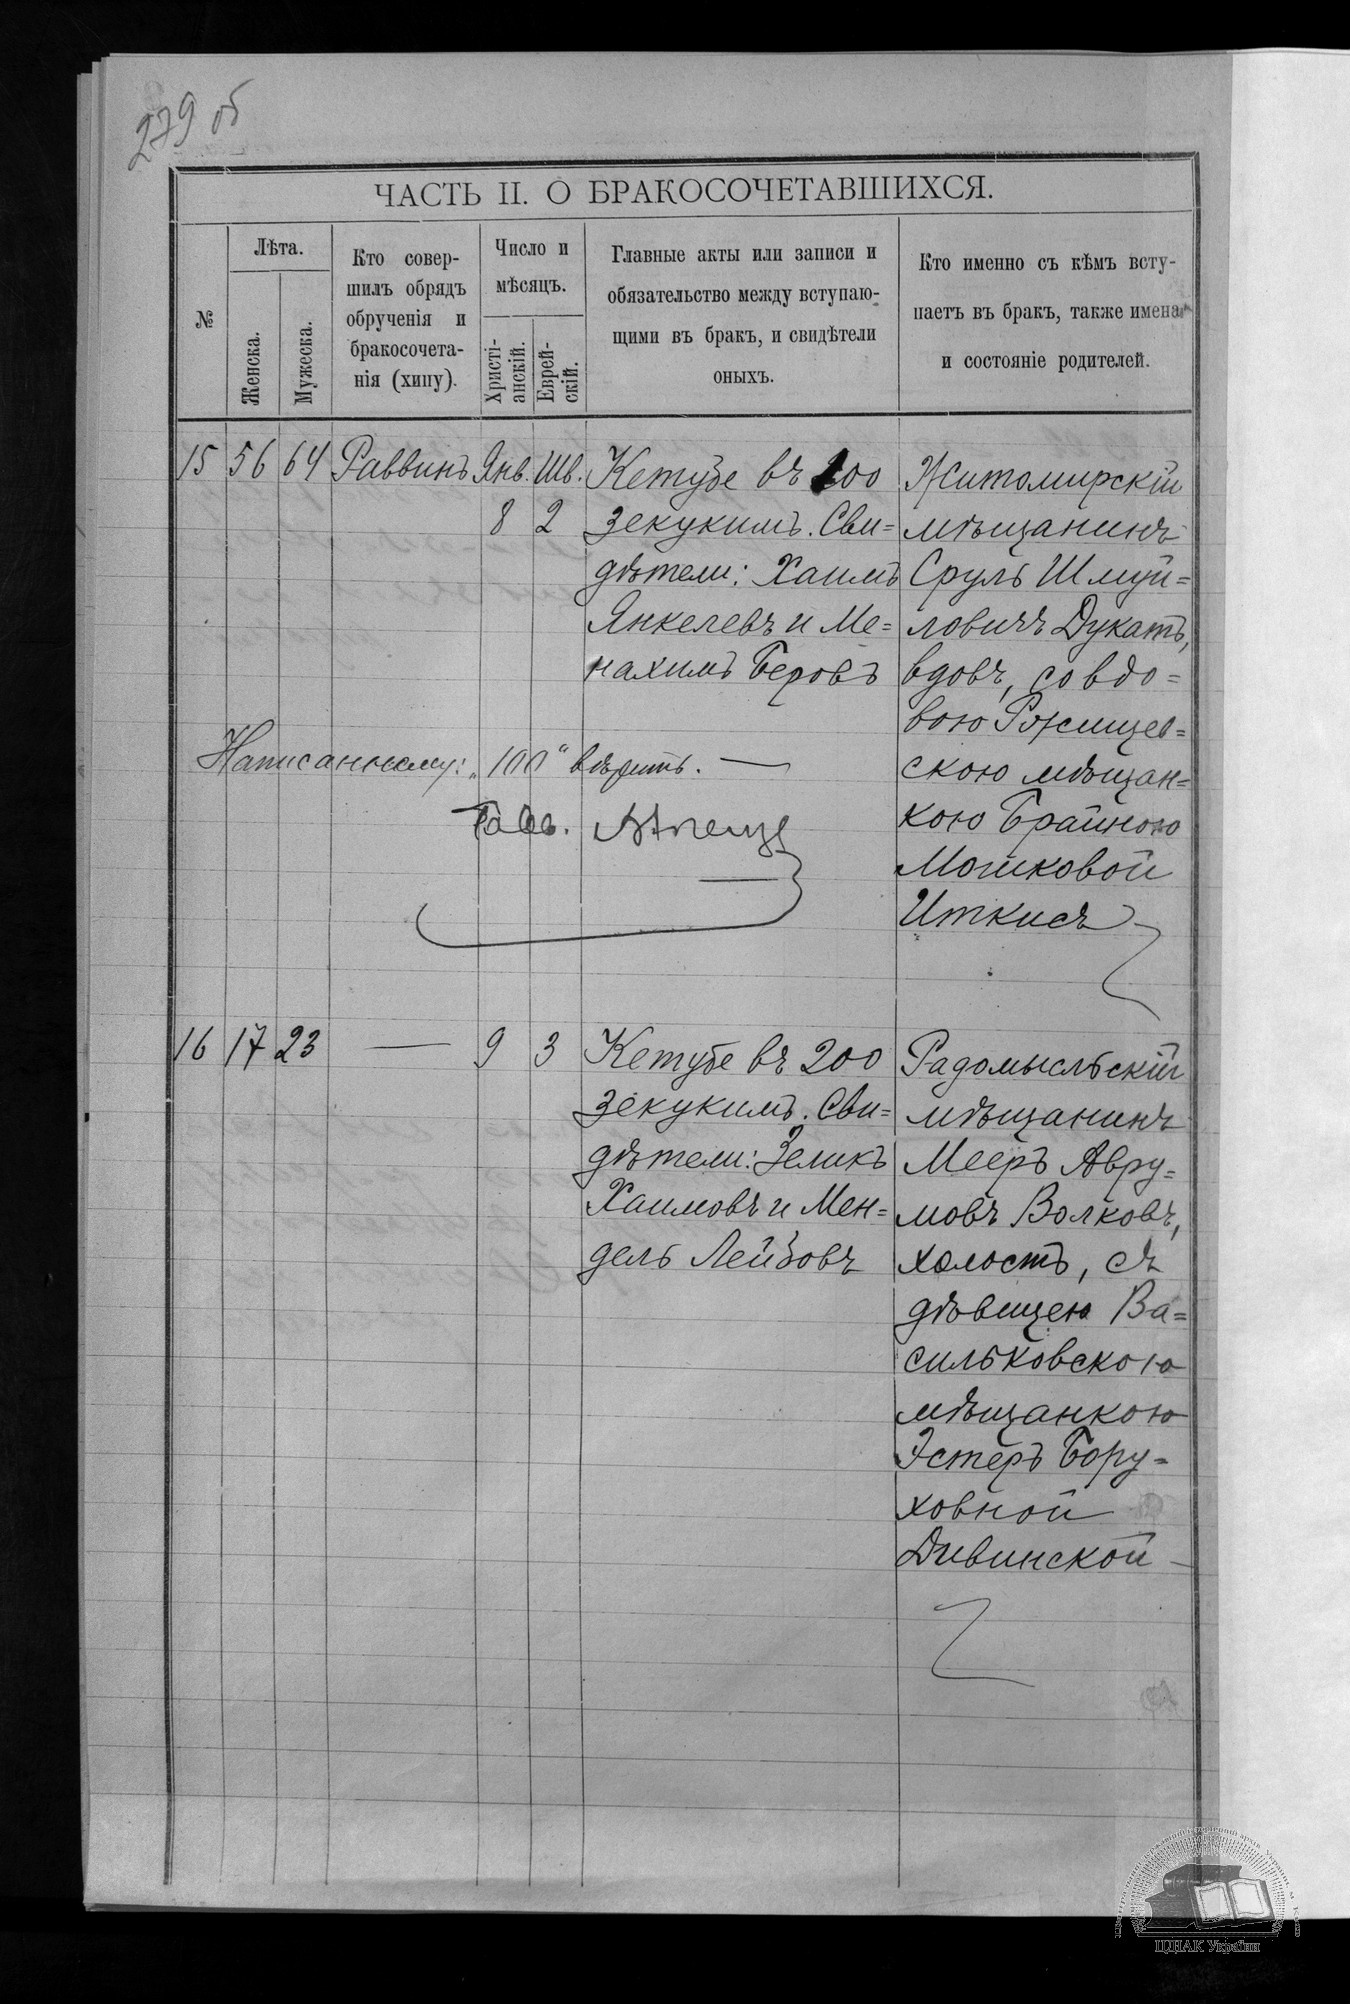 279 об
ЧАСТЬ II. О БРАКОСОЧЕТАВШИХСЯ.
№
Лѣта.
Женска.
Мужеска.
Кто совер-
шилъ обрядъ
обрученія и
бракосочета-
нія (хипу).
Число и
мѣсяцъ.
Христі-
анскій.
Еврей-
скій.
Главные акты или записи и
обязательство между вступаю-
щими въ бракъ, и свидѣтели
оныхъ.
Кто именно съ кѣмъ всту-
паетъ въ бракъ, также имена
и состояніе родителей.
15 56 64 Раввинъ Янв. Шв.
8 2
Кетубе въ 100
зекукимъ. Сви=
дѣтели: Хаимъ
Янкелевъ и Ме=
нахимъ Беровъ
Житомирскій
мѣщанинъ
Сруль Шмуй=
ловичъ Дукатъ,
вдовъ, со вдо=
вою Ржищев=
скою мѣщан=
кою Брайною
Мошковой
Иткисъ
Написанному: „100“ вѣрить. —
Равв.
16 17 23 — 9 3
Кетубе въ 200
зекукимъ. Сви=
дѣтели: Зеликъ
Хаимовъ и Мен=
дель Лейзовъ
Радомысльскій
мѣщанинъ
Мееръ Авру=
мовъ Волковъ,
холостъ, съ
дѣвицею Ва=
сильковскою
мѣщанкою
Эстеръ Бору=
ховной
Дивинской —
ЦДІАК України